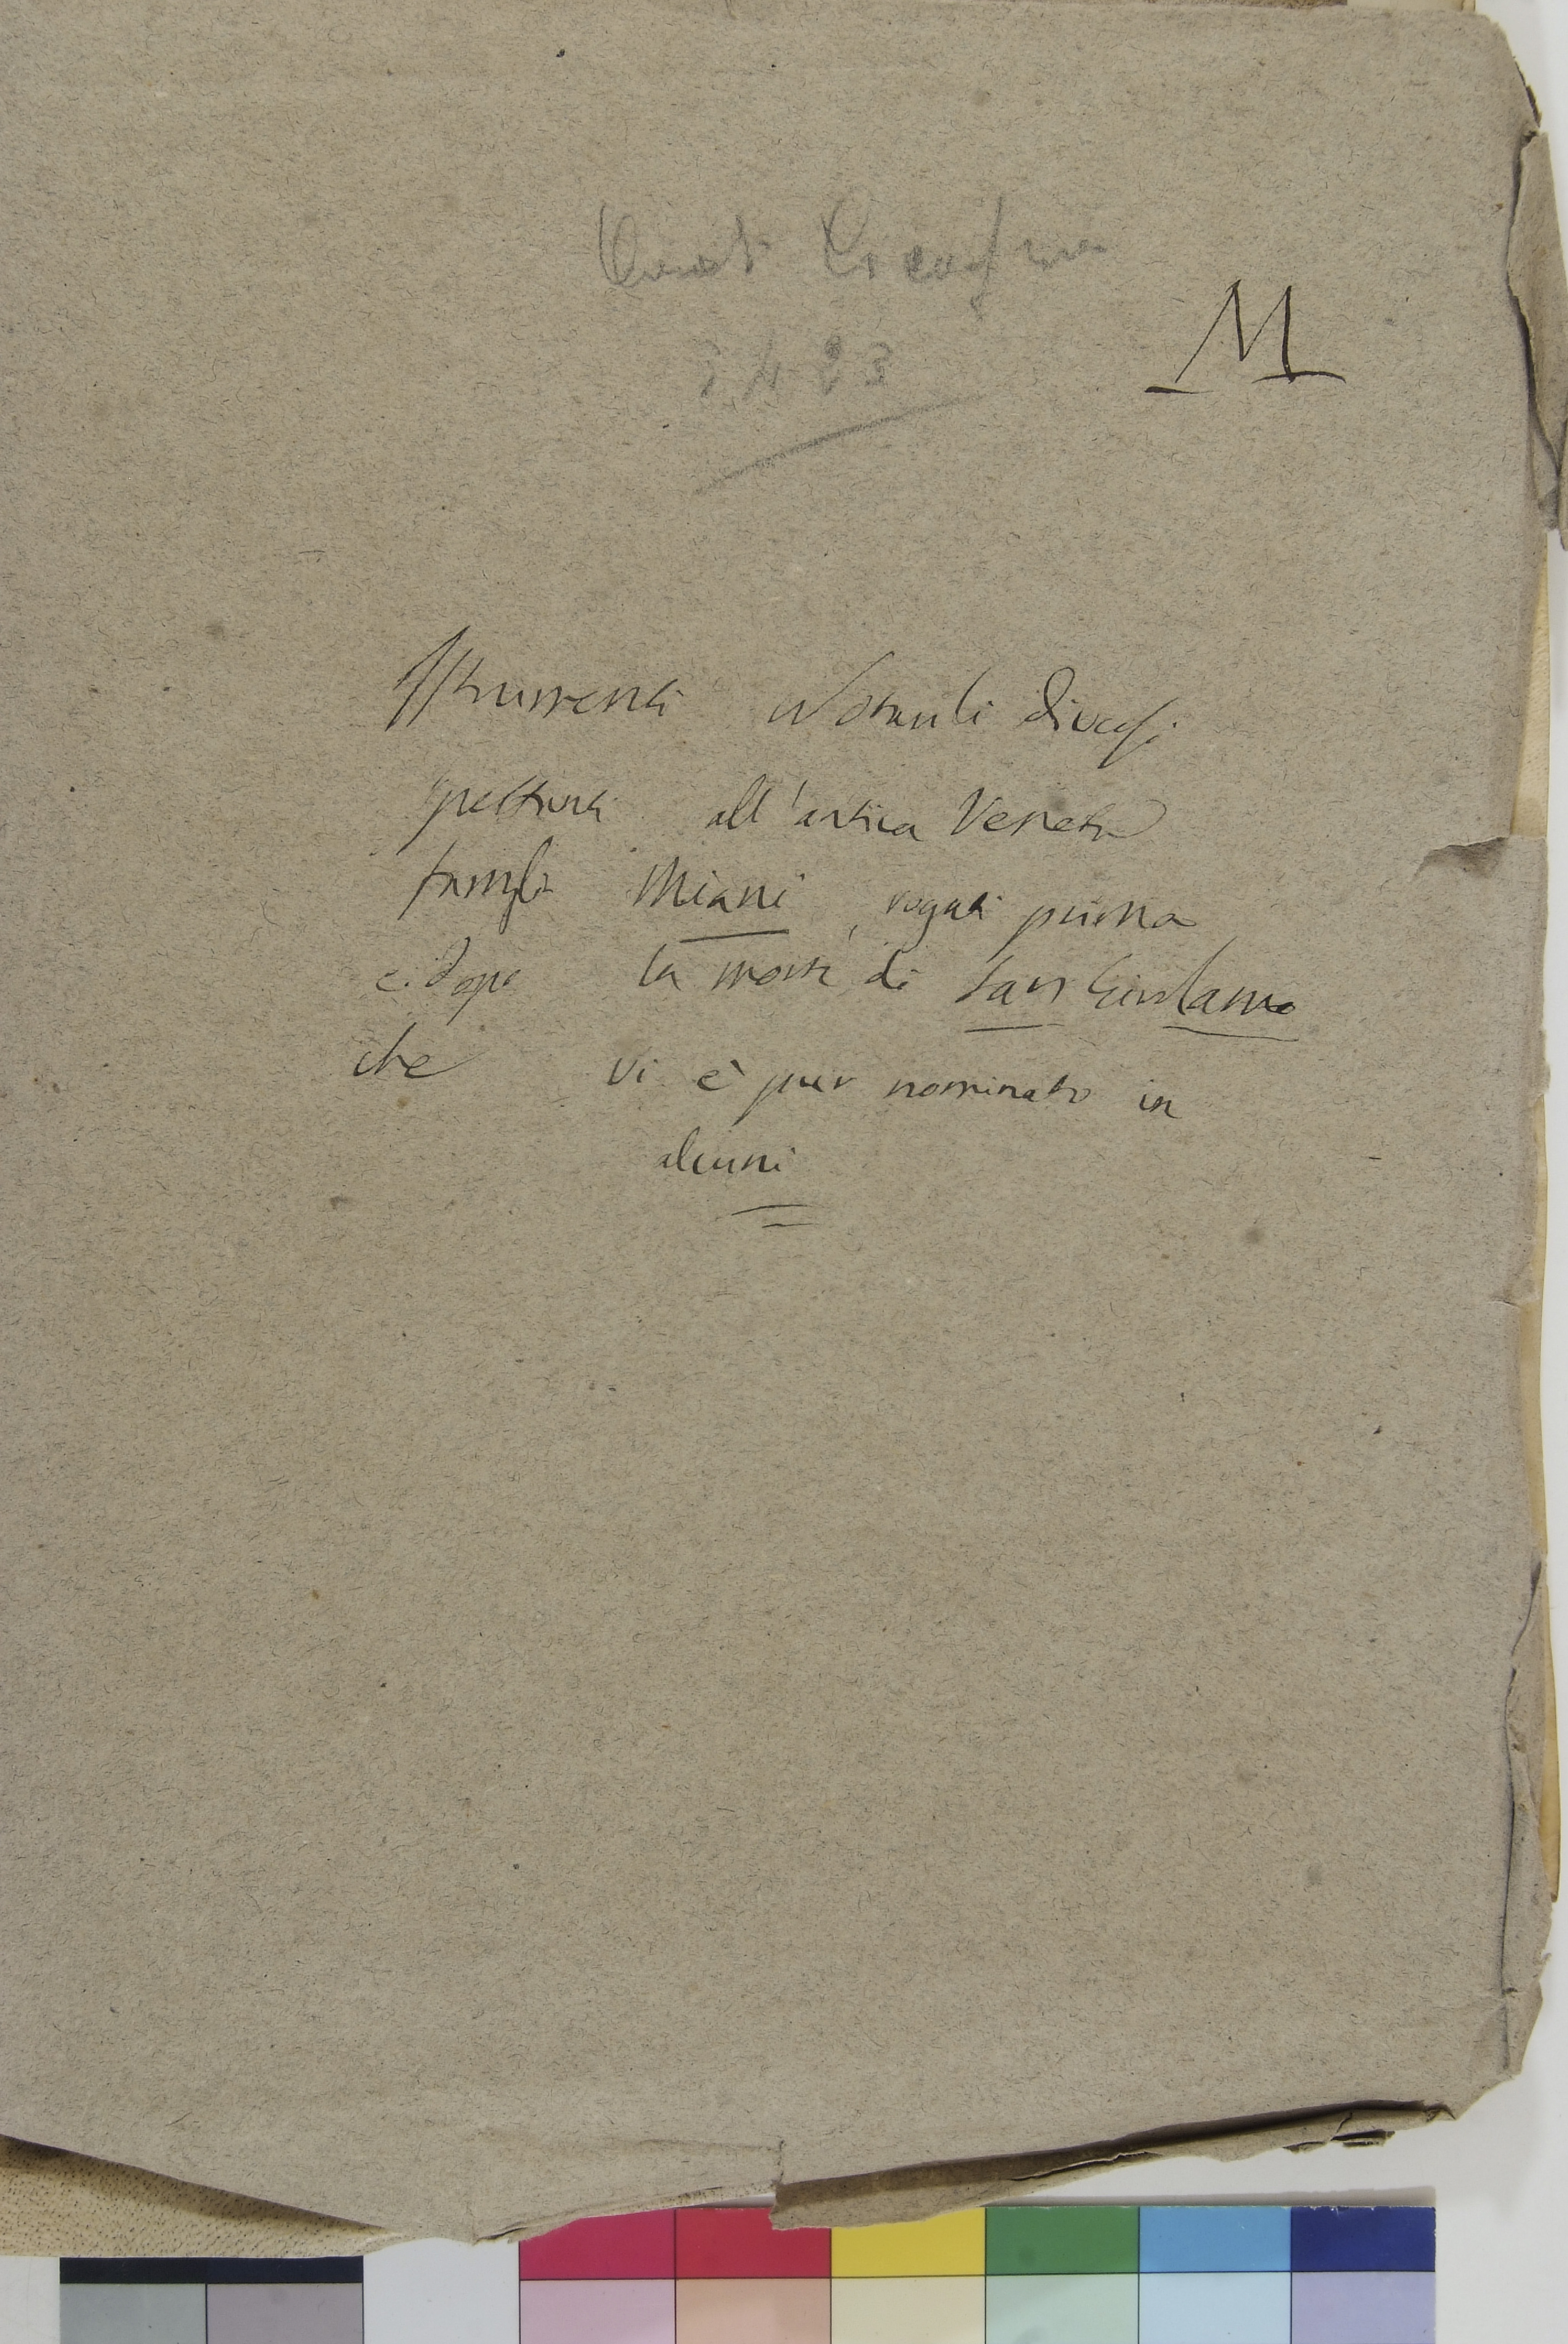 Cicogna
3423
M
Istrumenti Notarili diversi
spettanti all'antica Veneta
famiglia Miani, rogati prima
e dopo la morte di San Girolamo
che vi è pur nominato in
alcuni